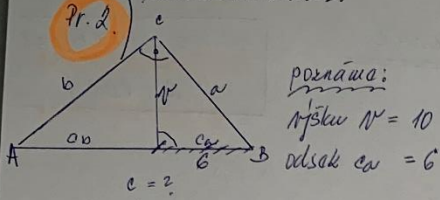 Pr. 2.
C
b
v
a
cb
ca
6
A
B
c = ?
poznáme:
výšku v = 10
odsek ca = 6